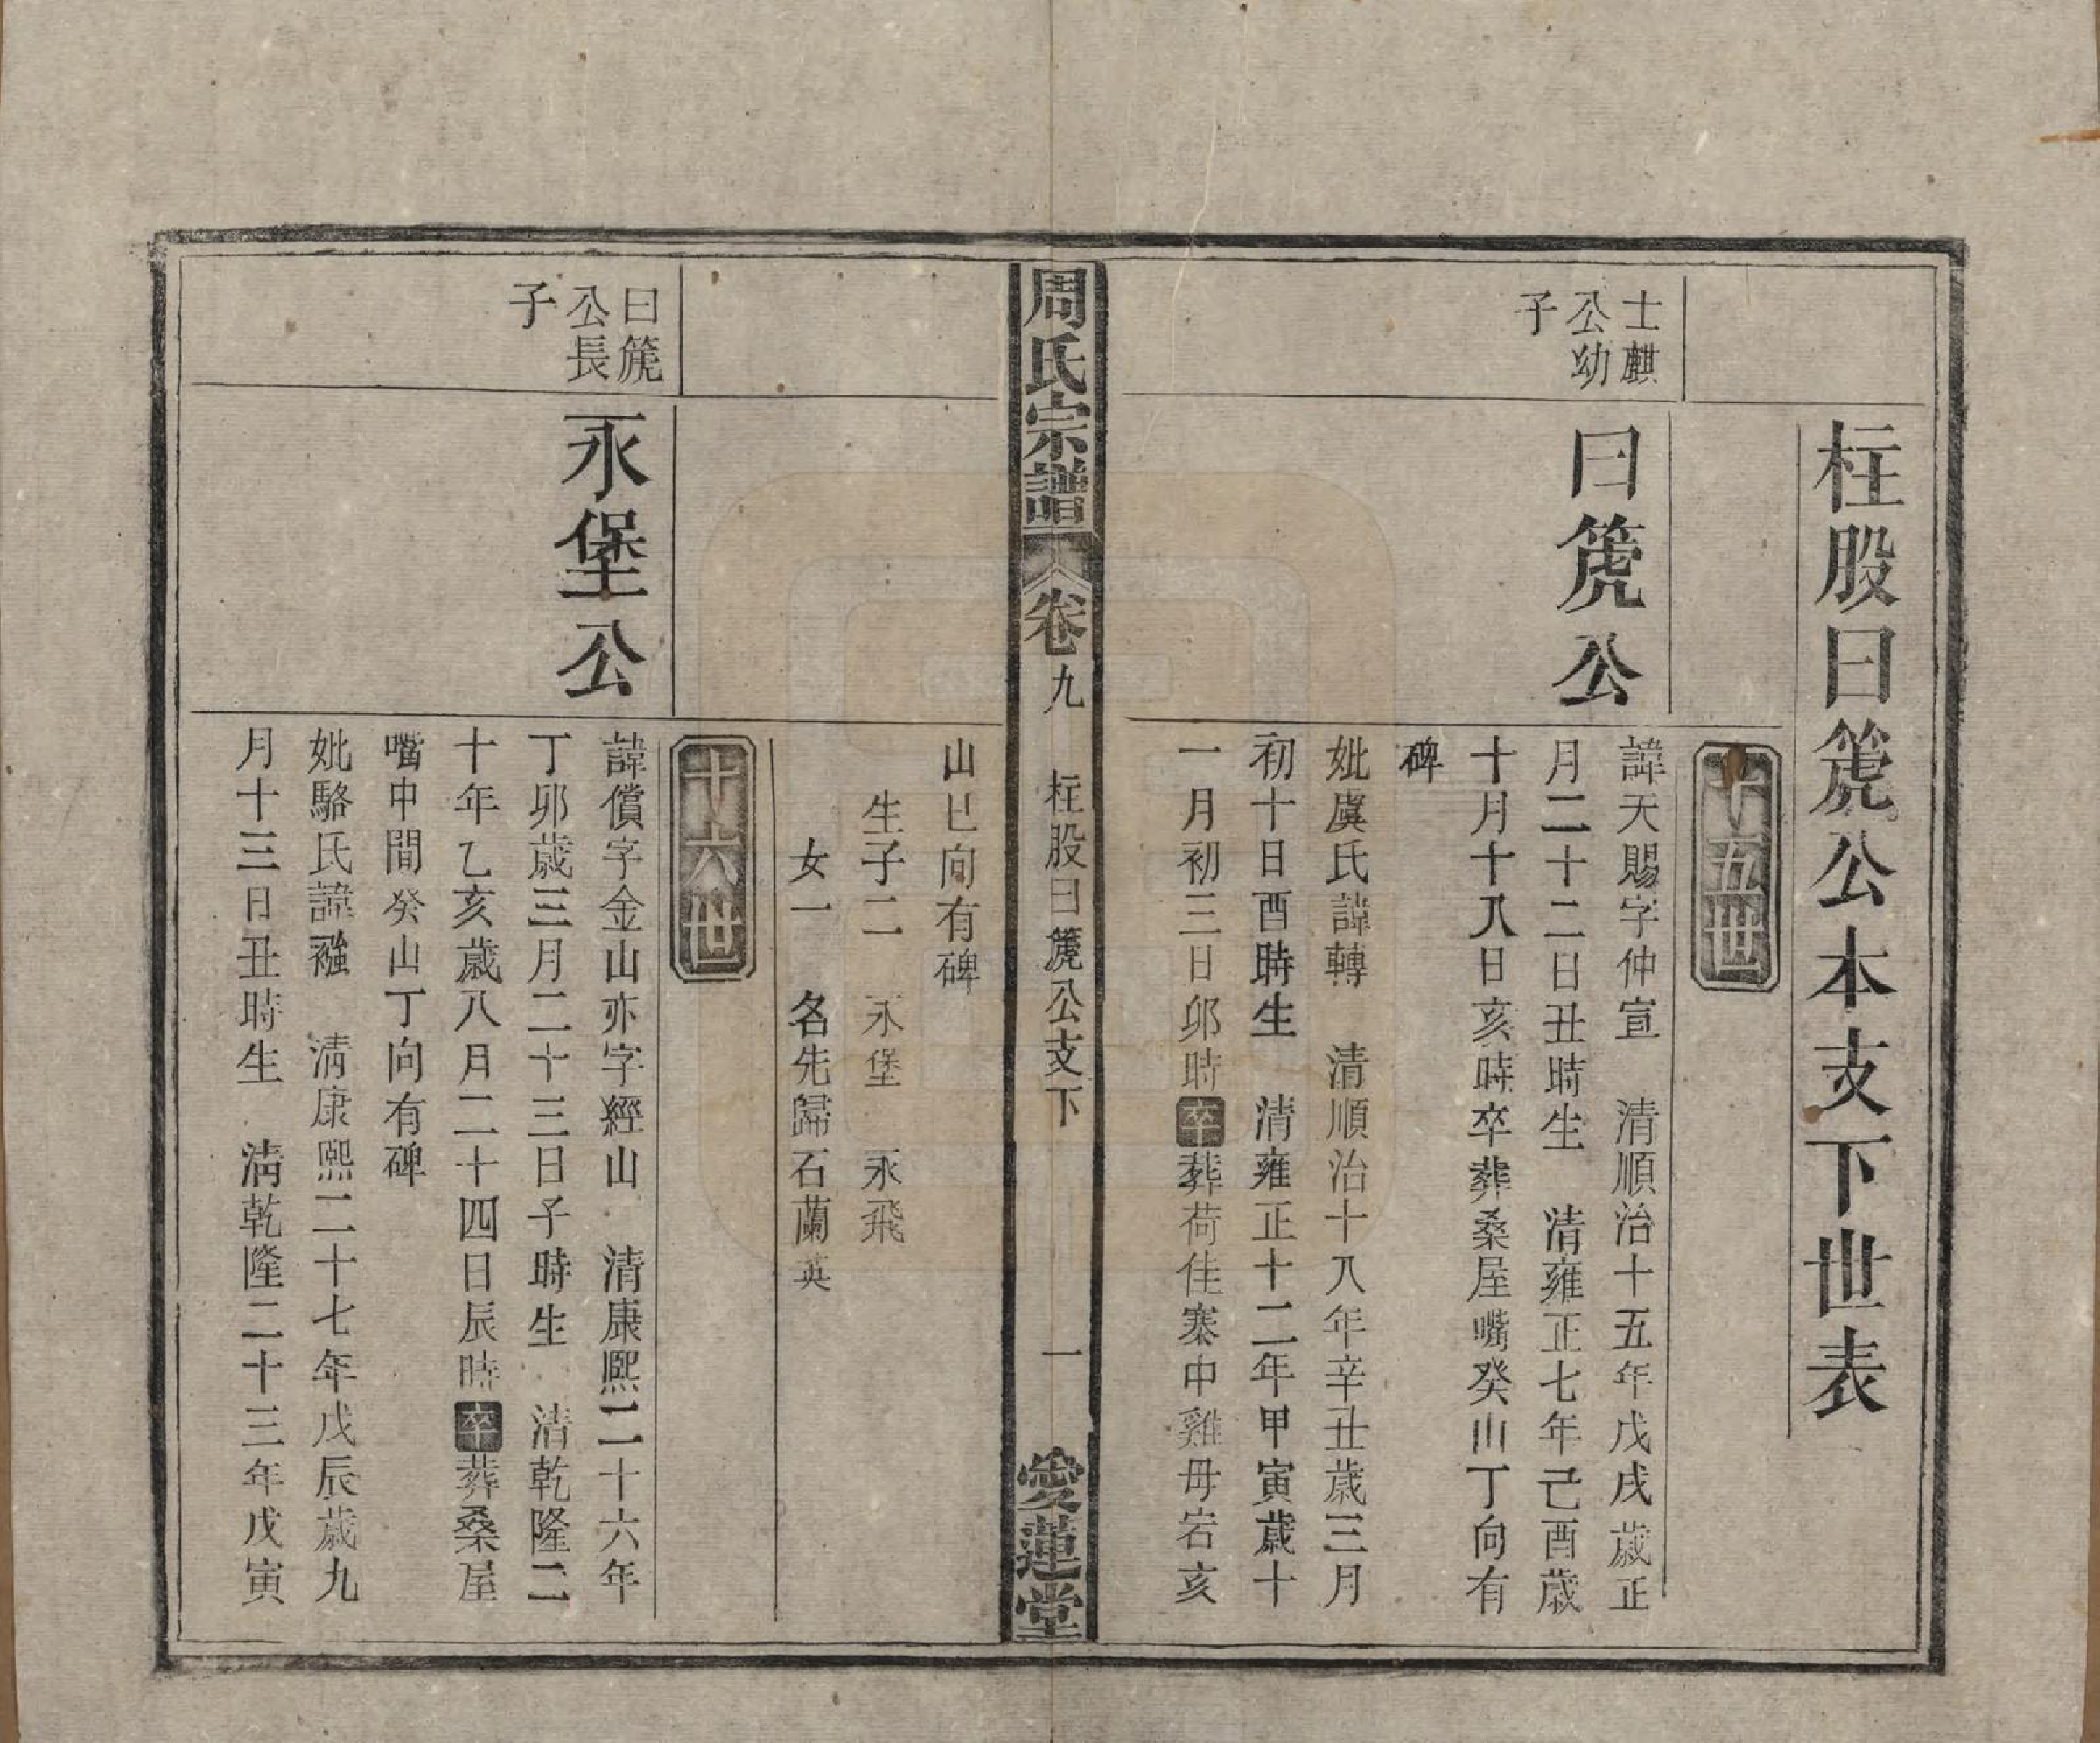 柱股曰箎公本支下世表
十五世
士麒
公幼
子
曰箎公
諱天賜字仲宣　清順治十五年戊戌歲正
月二十二日丑時生　清雍正七年己酉歲
十月十八日亥時卒葬桑屋嘴癸山丁向有
碑
妣虞氏諱轉　清順治十八年辛丑歲三月
初十日酉時生　清雍正十二年甲寅歲十
一月初三日卯時卒葬荷佳寨中雞毋岩亥
周氏宗譜
卷九
柱股曰箎公支下
一
愛蓮堂
山巳向有碑
生子二　永堡　永飛
女一　名先歸石蘭英
十六世
曰箎
公長
子
永堡公
諱償字金山亦字經山　清康熙二十六年
丁卯歲三月二十三日子時生　清乾隆二
十年乙亥歲八月二十四日辰時卒葬桑屋
嘴中間癸山丁向有碑
妣駱氏諱襁　清康熙二十七年戊辰歲九
月十三日丑時生　清乾隆二十三年戊寅